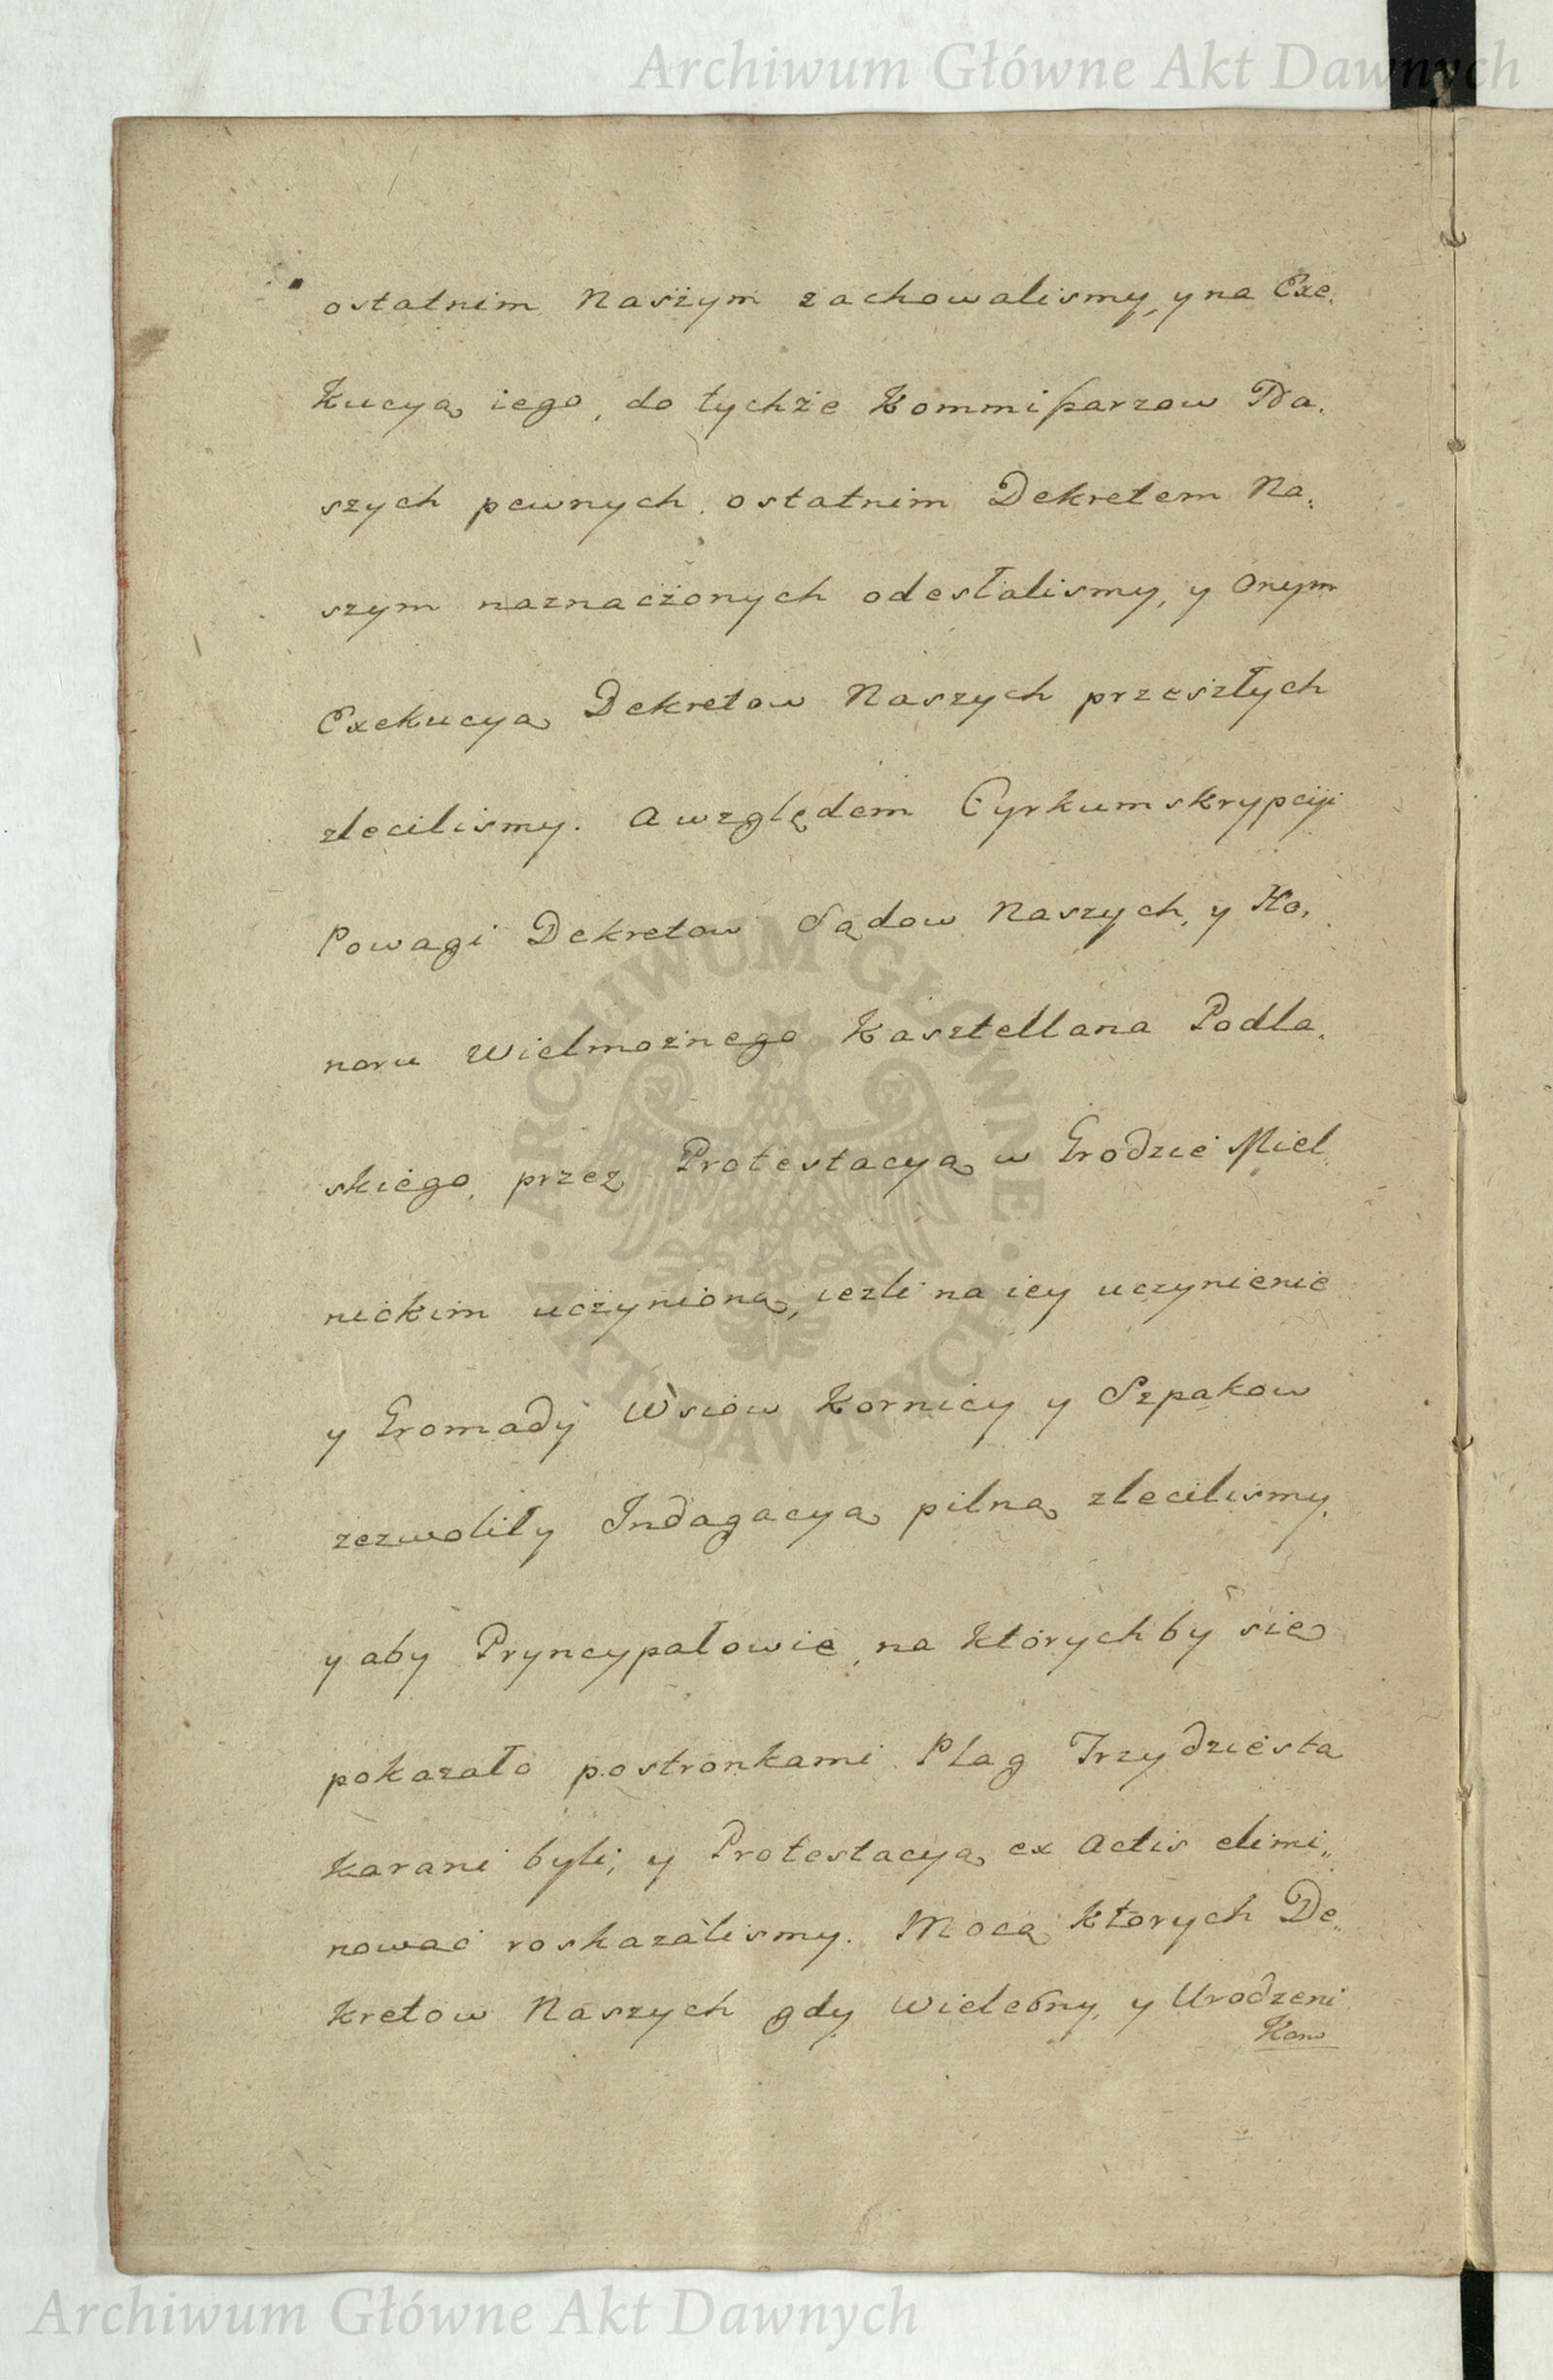 Archiwum Główne Akt Dawnych
ostatnim Naszym zachowalismy, y na Exe.
kucyą iego, do tychże Kommißarzow Na.
szych pewnych ostatnim Dekretem Na.
szym naznaczonych odesłalismy, y onym
Exekucyą Dekretow Naszych przeszłych
zlecilismy. A względem Cyrkumskrypcyi
Powagi Dekretow Sądow Naszych, y Ho,
noru Wielmożnego Kasztellana Podla.
skiego, przez Protestacyą w Grodzie Miel.
nickim uczynioną, iezli na iey uczynienie
y Gromady Wsiow Kornicy y Szpakow
zezwoliły Indagacyą pilną zlecilismy,
y aby Pryncypałowie, na ktorychby się
pokazało postronkami Plag Trzydziesta
karani byli, y Protestacyą ex Actis elimi„
nować roskazalismy. Mocą ktorych De„
kretow Naszych gdy Wielebny, y Urodzeni
Kom
ARCHIWUM GŁÓWNE · AKT DAWNYCH ·
Archiwum Główne Akt Dawnych